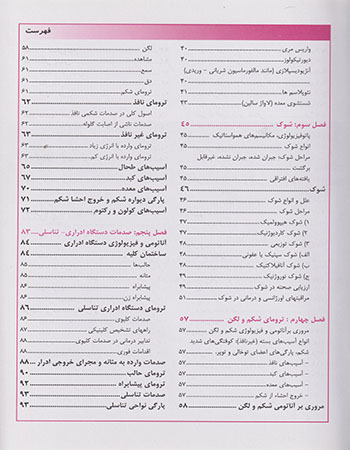 فهرست
واریس مری ... ۴۰
دیورتیکولوز ... ۴۰
آنژیودیسپلازی (مانند مالفورماسیون شریانی - وریدی)
... ۴۰
نئوپلاسم ها ... ۴۱
شستشوی معده (لاواژ سالین) ... ۴۳
فصل سوم: شوک ... ۴۵
پاتوفیزیولوژی، مکانیسم‌های همواستاتیک ... ۴۵
انواع شوک ... ۴۵
مراحل شوک: جبران شده، جبران نشده، غیرقابل
برگشت ... ۴۵
یافته‌های افتراقی ... ۴۵
شوک ... ۴۶
علل و انواع شوک ... ۴۶
مراحل شوک ... ۴۶
۱) شوک هیپوولمیک ... ۴۷
۲) شوک کاردیوژنیک ... ۴۷
۳) شوک توزیعی ... ۴۸
الف) شوک سپتیک یا عفونی ... ۴۸
ب) شوک آنافیلاکتیک ... ۴۸
ج) شوک نوروژنیک ... ۴۹
ارزیابی صحنه در شوک ... ۴۹
مراقبتهای اورژانسی و درمانی در شوک ... ۵۱
فصل چهارم : ترومای شکم و لگن ... ۵۷
مروری بر آناتومی و فیزیولوژی شکم و لگن ... ۵۷
انواع آسیب‌های بسته (غیرنافذ): کوفتگی‌های شدید
شکم، پارگی‌های اعضای توخالی و توپر، ... ۵۷
– آسیب‌های نافذ ... ۵۷
– آسیب‌های کبد ... ۵۷
– آسیب‌های معده ... ۵۷
– خروج احشاء از شکم ... ۵۷
مروری بر آناتومی شکم و لگن ... ۵۸
لگن ... ۵۸
مشاهده ... ۶۱
سمع ... ۶۱
دق ... ۶۱
ترومای شکم ... ۶۱
ترومای نافذ ... ۶۲
اصول کلی در صدمات شکمی نافذ ... ۶۲
صدمات ناشی از اصابت گلوله ... ۶۲
ترومای غیر نافذ ... ۶۳
ترومای وارده با انرژی زیاد ... ۶۳
ترومای وارده با انرژی کم ... ۶۳
آسیب‌های طحال ... ۶۵
آسیب‌های کبد ... ۶۷
آسیب‌های معده ... ۷۰
پارگی دیواره شکم و خروج احشا شکم ... ۷۱
آسیب‌های کولون و رکتوم ... ۷۲
فصل پنجم: صدمات دستگاه ادراری - تناسلی ... ۸۳
آناتومی و فیزیولوژی دستگاه ادراری ... ۸۴
ساختمان کلیه ... ۸۴
حالب‌ها ... ۸۵
مثانه ... ۸۵
پیشابراه ... ۸۶
پیشابراه زن ... ۸۶
ترومای دستگاه ادراری تناسلی ... ۸۶
صدمات کلیوی ... ۸۶
راههای تشخیص کلینیکی ... ۸۷
تدابیر درمانی در صدمات کلیوی ... ۸۸
اقدامات فوری ... ۸۸
صدمات وارده به مثانه و مجرای خروجی ادرار ... ۸۸
ترومای حالب ... ۹۰
ترومای پیشابراه ... ۹۲
صدمات تناسلی ... ۹۳
پارگی نواحی تناسلی ... ۹۳